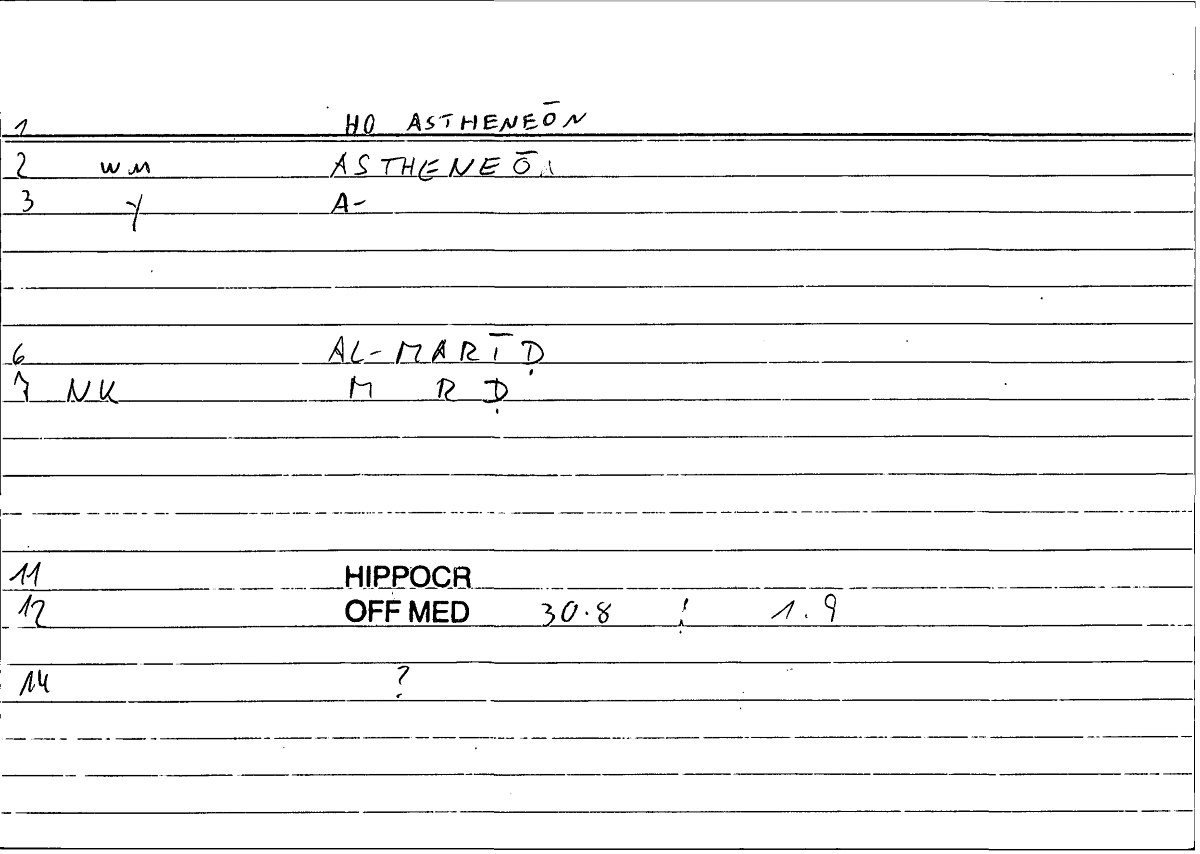 1 HO ASTHENEŌN
2 WM ASTHENEŌ
3 Y A-
6 AL-MARĪḌ
7 NK M R Ḍ
11 HIPPOCR
12 OFF MED 30.8 ; 1.9
14 ?